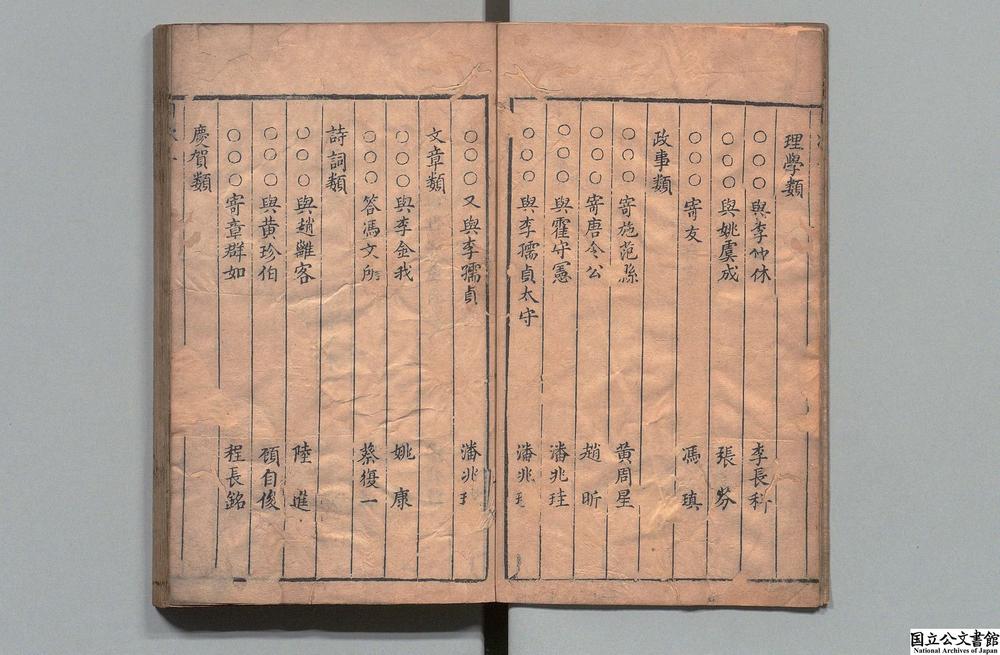 理學類
○○○與李仲休 李長科
○○○與姚虞成 張芬
○○○寄友 馮瑱
政事類
○○○寄施范縣 黃周星
○○○寄唐令公 趙昕
○○○與霍守憲 潘兆珪
○○○與李孺貞太守 潘兆
○○○又與李孺貞 潘兆
文章類
○○○與李金我 姚康
○○○答馮文所 蔡復一
詩詞類
○○○與趙雖客 陸進
○○○與黄珍伯 顧自俊
○○○寄章群如 程長銘
慶賀類
国立公文書館
National Archives of Japan